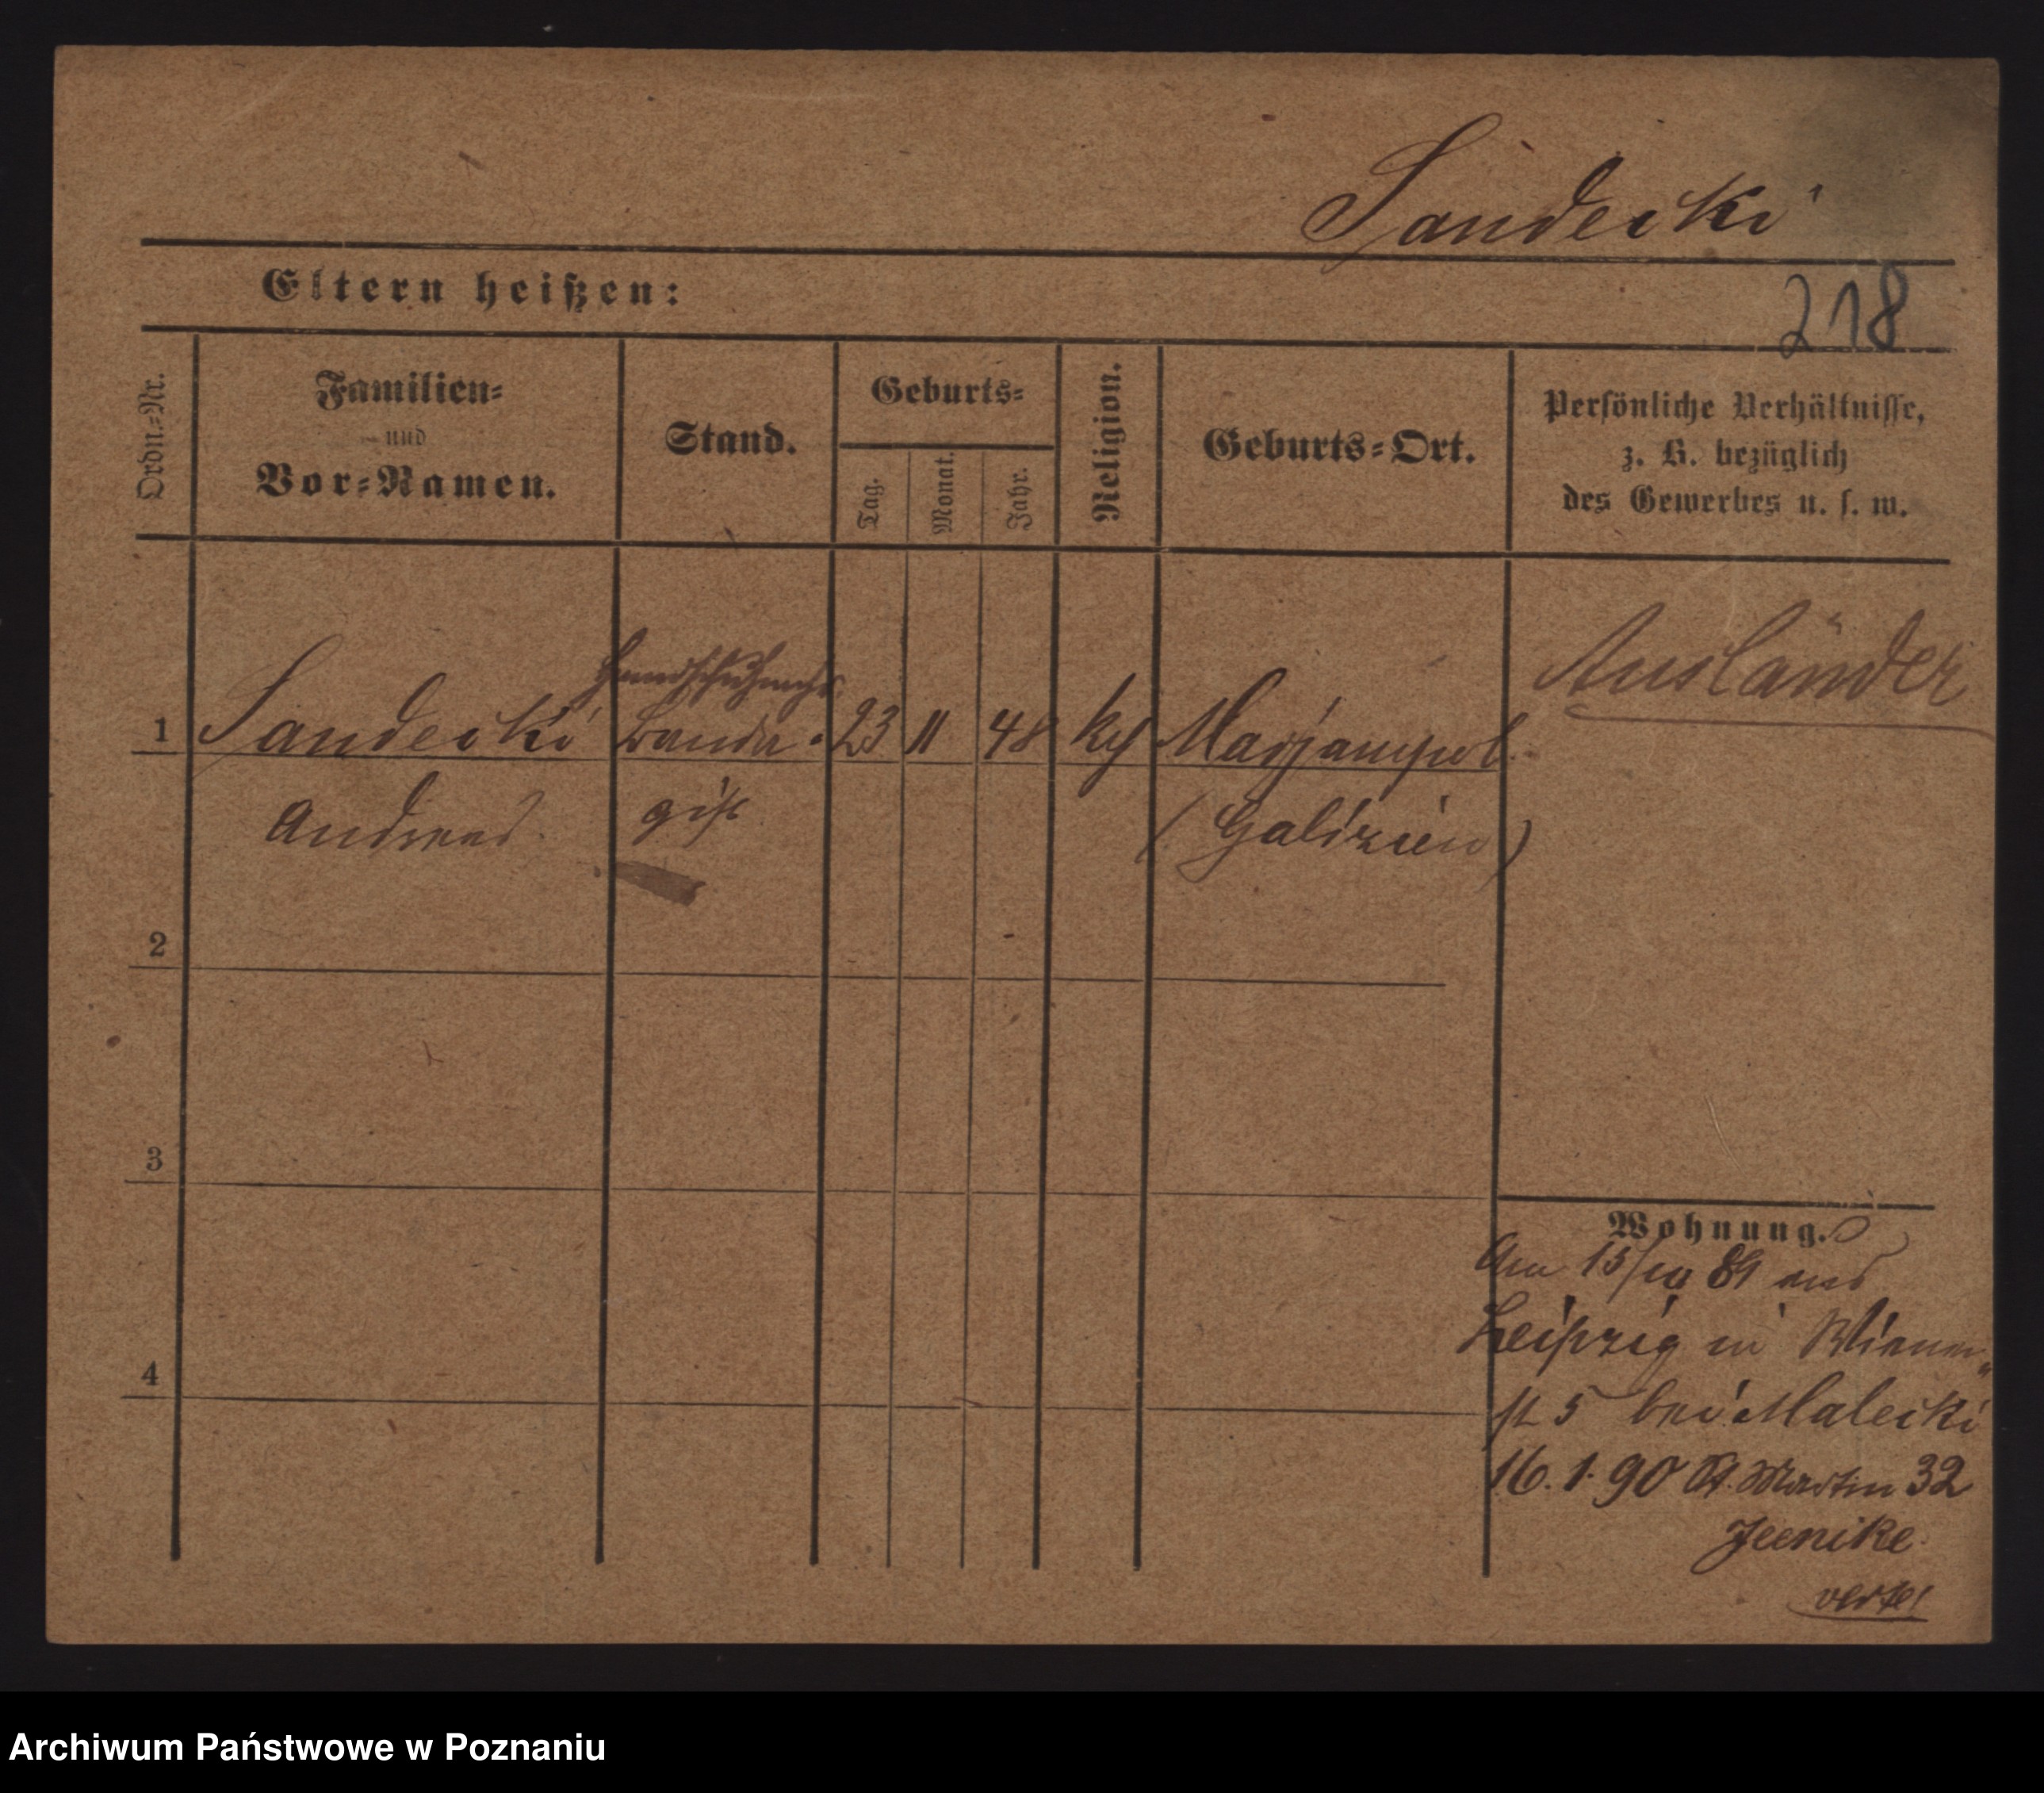 Sandecki
Eltern heißen:
218
Ordn.-Nr.
Familien-
und
Vor-Namen.
Stand.
Geburts-
Tag.
Monat.
Jahr.
Religion.
Geburts-Ort.
Persönliche Verhältnisse,
z. B. bezüglich
des Gewerbes u. s. w.
Ausländer
Handschuhmchr
1 Sandecki Banda- 23 11 48 kg Marjampol
Andreas gist (Galizien)
2
3
4
Wohnung.
Am 15/10 89 aus
Leipzig in Wiener
st 5 bei Malecki
16.1.90 St. Martin 32
Jeenike
verte!
Archiwum Państwowe w Poznaniu